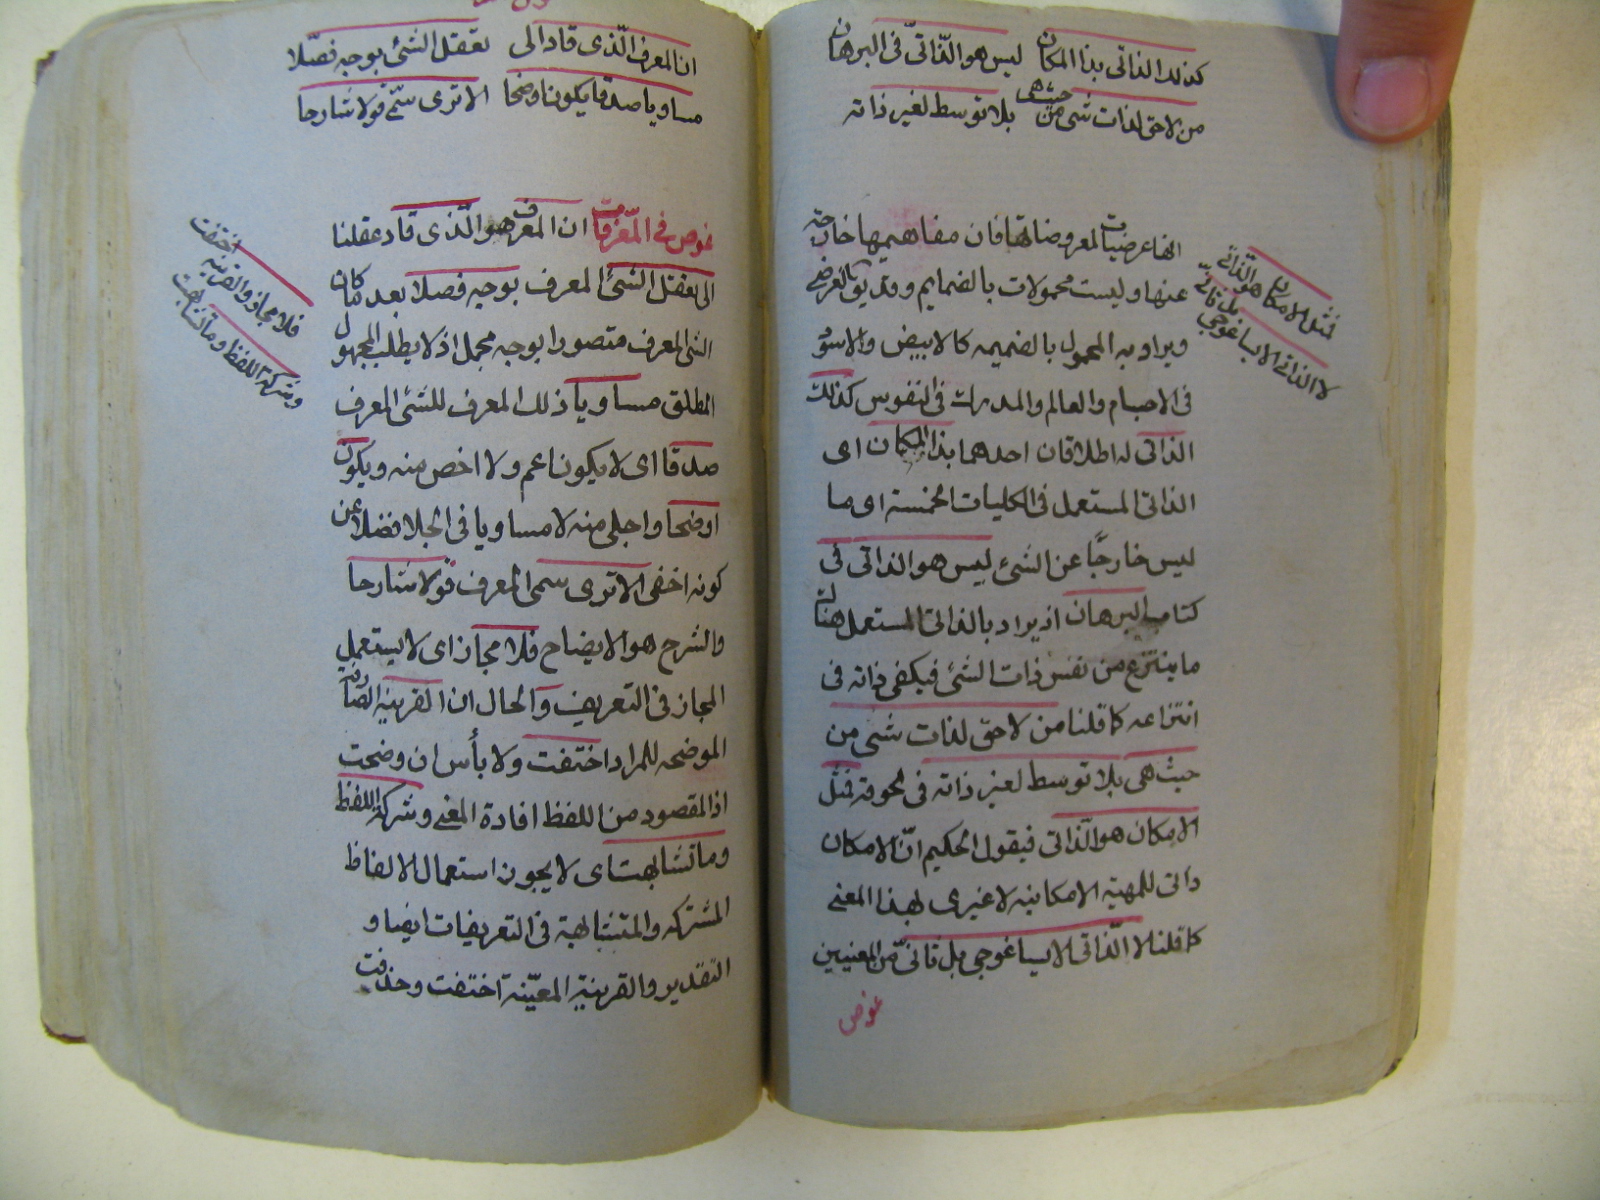 كذلك الذاتى بذا المكان ليس هو الذّاتىّ فى البرهان
من لاحق لذات شىء من حيث هى بلا توسط لغير ذاته
انها عرضيات لمعروضاتها فان مفاهيمها خارجة
عنها وليست محمولات بالضمايم وقد يق العرضى
ويراد به المحمول بالضميمه كالابيض والاسود
فى الاجسام والعالم والمدرك فى النفوس كذلك
الذاتى له اطلاقان احدهما بذا المكان اى
الذاتى المستعمل فى الكليات الخمسة اى ما
ليس خارجًا عن الشئ ليس هو الذاتى فى
كتاب البرهان اذ يراد بالذاتى المستعمل هناك
ما ينتزع من نفس ذات الشئ فيكفى ذاته فى
انتزاعه كما قلنا من لاحق لذات شىء من
حيث هى بلا توسط لغير ذاته فى لحوقه فمثل
الامكان هو الذّاتى فيقول الحكيم انّ الامكان
ذاتى للمهية الامكانيه لا غيرى لهذا المعنى
كما قلنا لا الذّاتى الايساغوجى بل ثانىّ من المعنيين
غوص
فمثل الامكان هو الذّاتى
لا الذاتى الايساغوجى بل ثانى
ان المعرف الّذى قاد الى تعقل الشئ بوجه فصّلا
مساويا صدقا يكون اوضحا الا ترى سمّى قولا شارحا
غوص فى المعّرفات ان المعرف هو الّذى قاد عقلنا
الى تعقل الشئ المعرف بوجه فصلا بعد ما كان
الشئ المعرف متصورا بوجه مجمل اذ لا يطلب المجهول
المطلق مساويا ذلك المعرف للشئ المعرف
صدقا اى لا يكون اعم ولا اخص منه ويكون
اوضحا واجلى منه لا مساويا فى الجلا فضلا عن
كونه اخفى الا ترى سمى المعرف قولا شارحا
والشرح هو الايضاح فلا مجاز اى لا يستعمل
المجاز فى التعريف والحال ان القرينه الصارفة
الموضحه للمراد اختفت ولا بأس ان وضحت
اذ المقصود من اللفظ افادة المعنى وشركة اللفظ
وما تشابهت اى لا يجوز استعمال الالفاظ
المشتركه والمتشابهة فى التعريفات ايضا و
التقدير والقرينة المعيّنة اختفت وحذفت
فلا مجاز والقرينه اختفت
وشركة اللفظ وما تشابهت